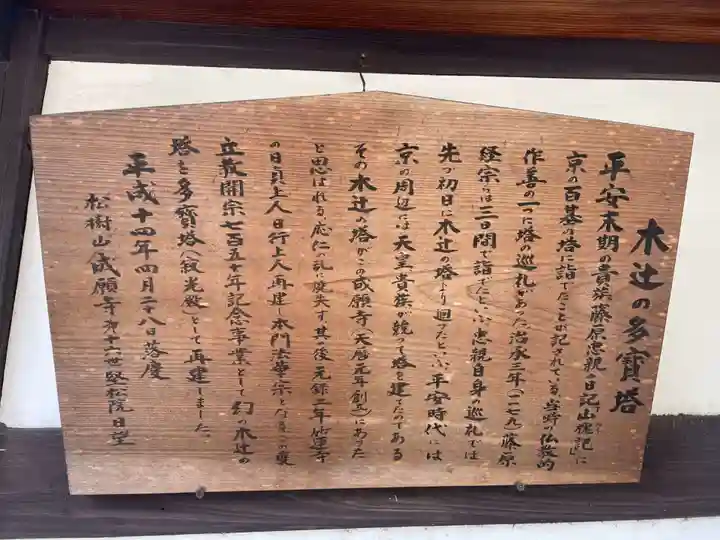 木辻の多寳塔
平安末期の貴族藤原忠親の日記「山槐記」に
京の百基の塔に詣でたことが記されている当時の仏教的
作善の一つに塔の巡礼があった治承三年(一一七九)藤原
経宗らは三日間で詣でたという忠親自身の巡礼では
先づ初日に木辻の塔より廻ったという平安時代には
京の周辺には天皇貴族が競って塔を建てたのである
その木辻の塔がこの成願寺(天暦元年創立)にあった
と思われる応仁の乱で焼失す其の後元禄二年 蓮寺
の日貞上人日行上人再建し本門法華宗となるこの度
立教開宗七百五十年記念事業として幻の木辻の
塔を多寳塔(寂光殿)として再建しました。
平成十四年四月二十八日落慶
松樹山成願寺 十六世堅松院日望